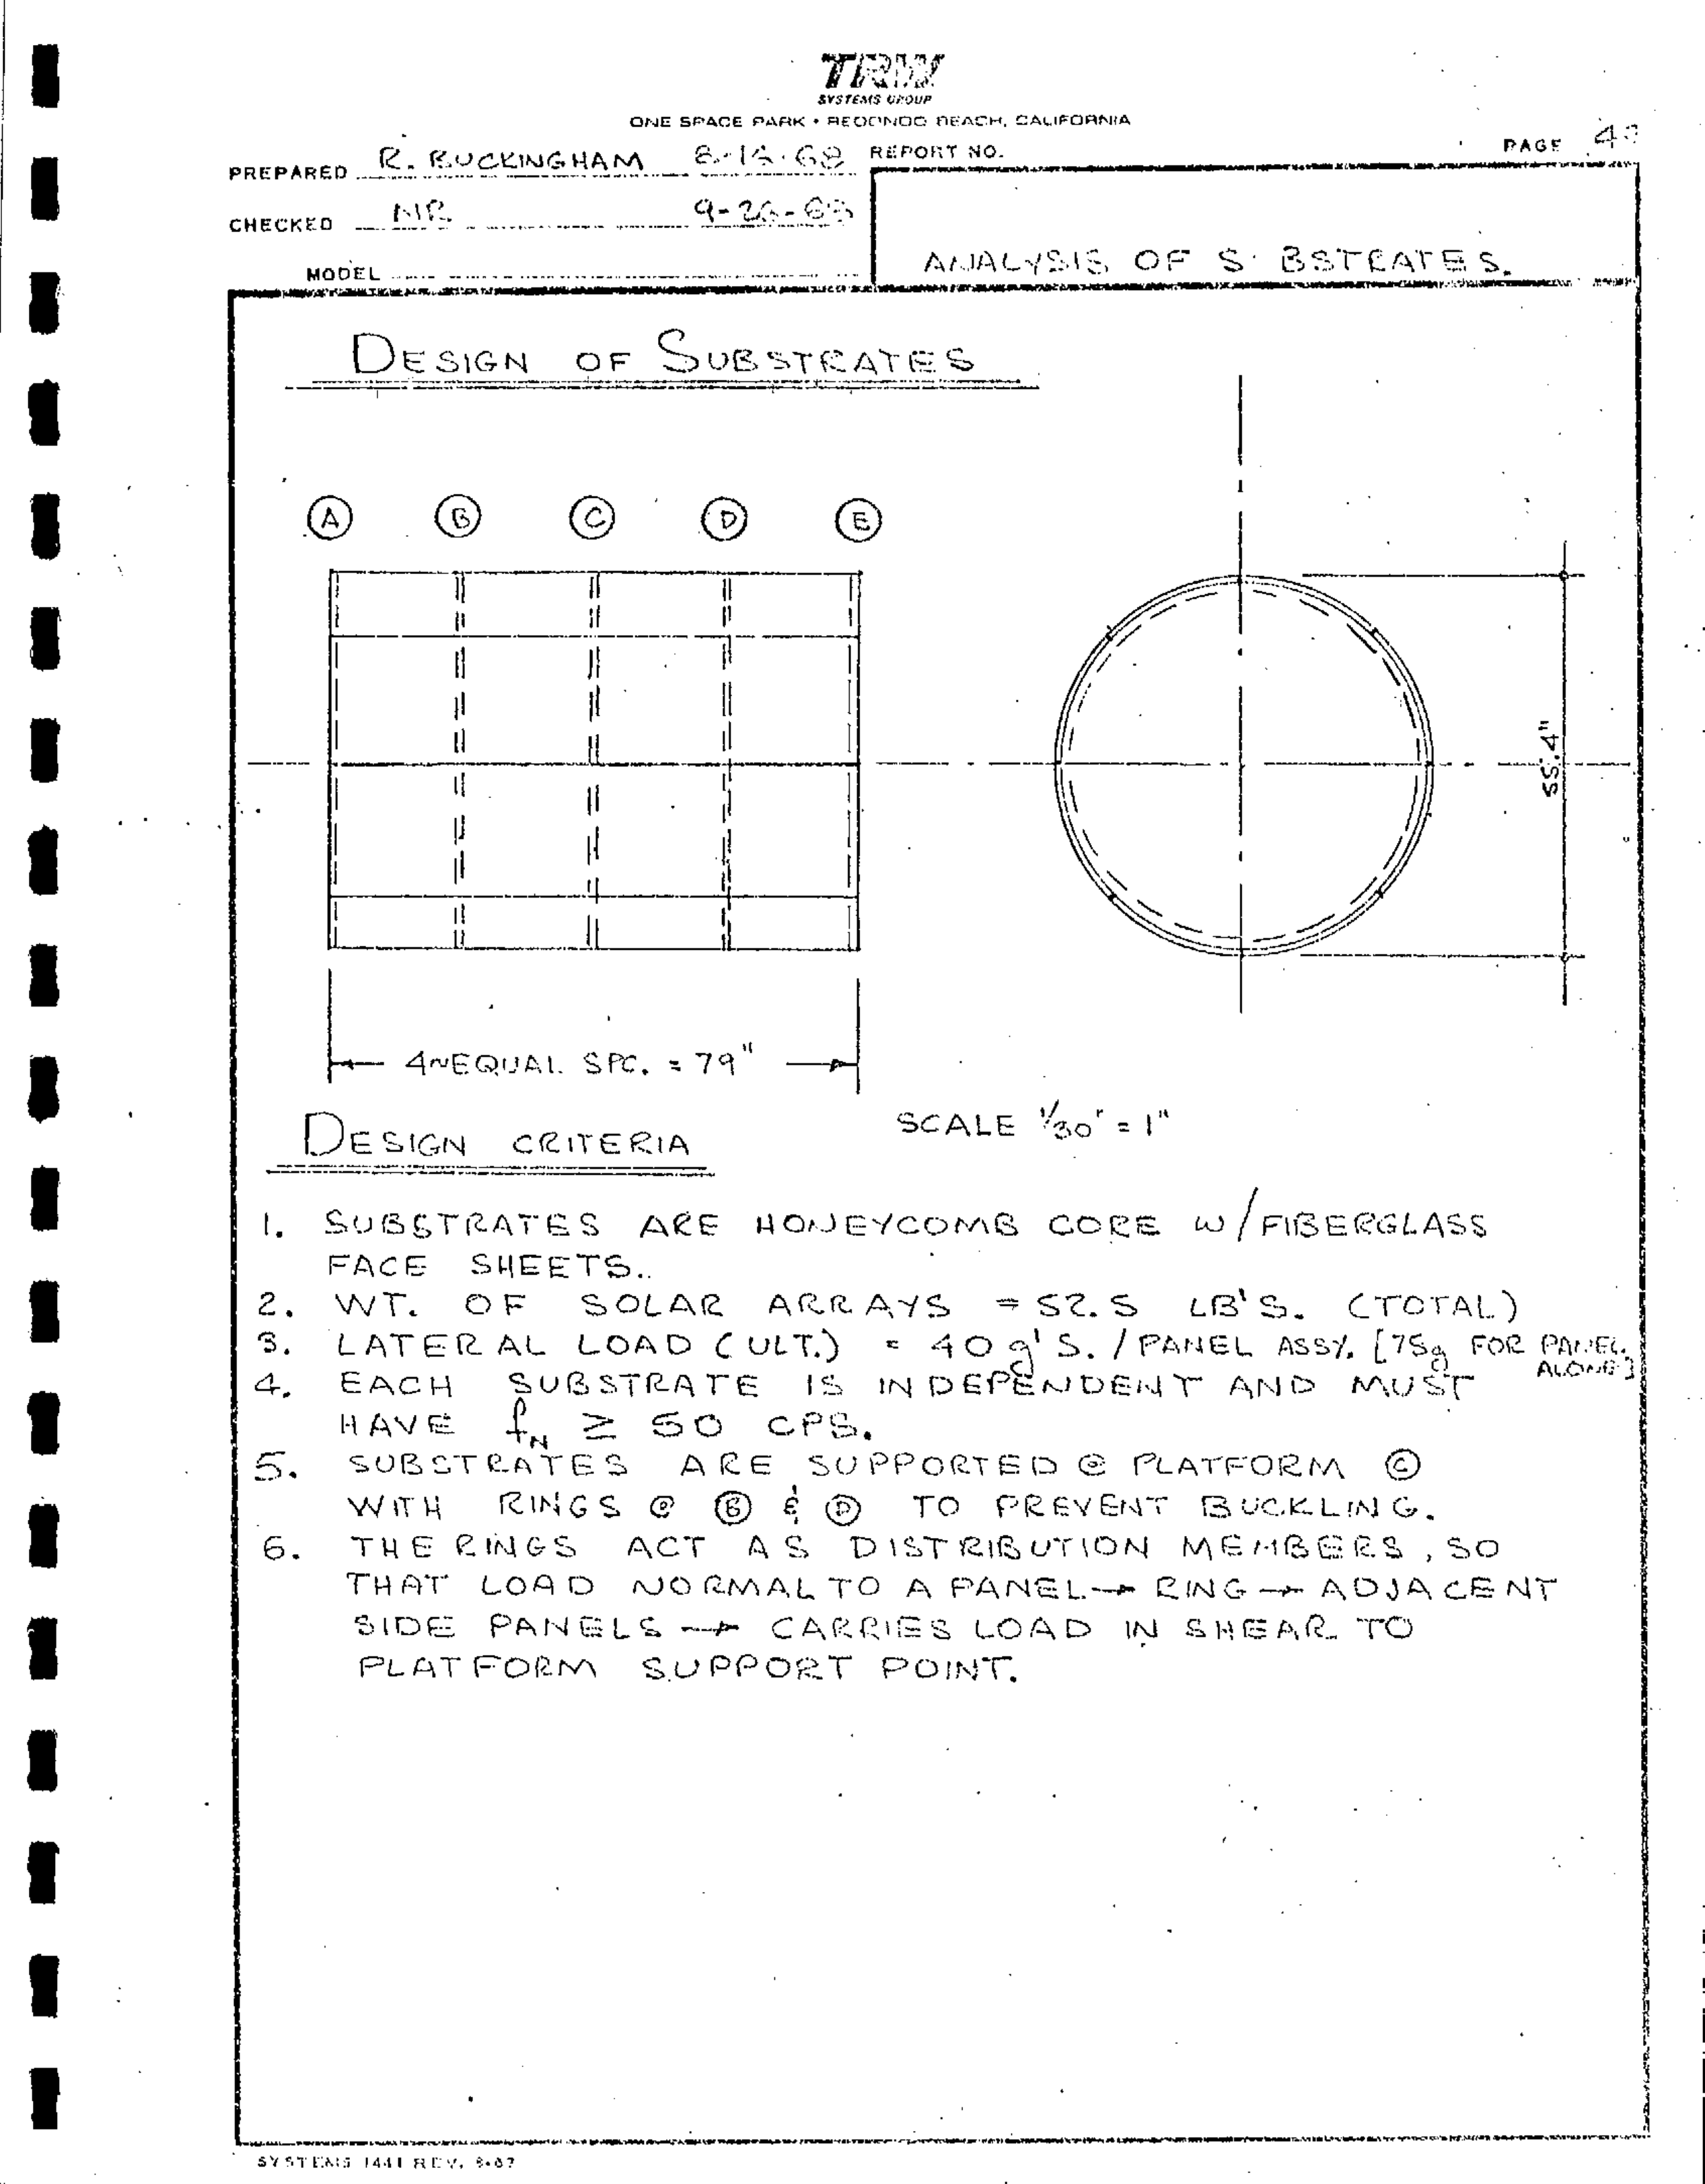 TRW
SYSTEMS GROUP
ONE SPACE PARK • REDONDO BEACH, CALIFORNIA
PREPARED R. BUCKINGHAM 68 REPORT NO. PAGE
CHECKED
MODEL
ANALYSIS OF S BSTRATES.
DESIGN OF SUBSTRATES
A B C D E
55.4"
4~EQUAL SPC. = 79"
SCALE 1/30" = 1"
DESIGN CRITERIA
1. SUBSTRATES ARE HONEYCOMB CORE W/FIBERGLASS
FACE SHEETS.
2. WT. OF SOLAR ARRAYS = 52.5 LB'S. (TOTAL)
3. LATERAL LOAD (ULT.) = 40 g'S. / PANEL ASSY. [75g FOR PANEL
ALONE]
4. EACH SUBSTRATE IS INDEPENDENT AND MUST
HAVE fN ≥ 50 CPS.
5. SUBSTRATES ARE SUPPORTED @ PLATFORM Ⓒ
WITH RINGS @ Ⓑ & Ⓓ TO PREVENT BUCKLING.
6. THE RINGS ACT AS DISTRIBUTION MEMBERS, SO
THAT LOAD NORMAL TO A PANEL → RING → ADJACENT
SIDE PANELS → CARRIES LOAD IN SHEAR TO
PLATFORM SUPPORT POINT.
SYSTEMS 1441 REV. 8-67